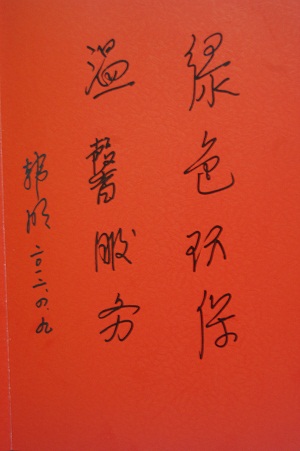 绿色环保
温馨服务
韩明
二〇一二.四.九